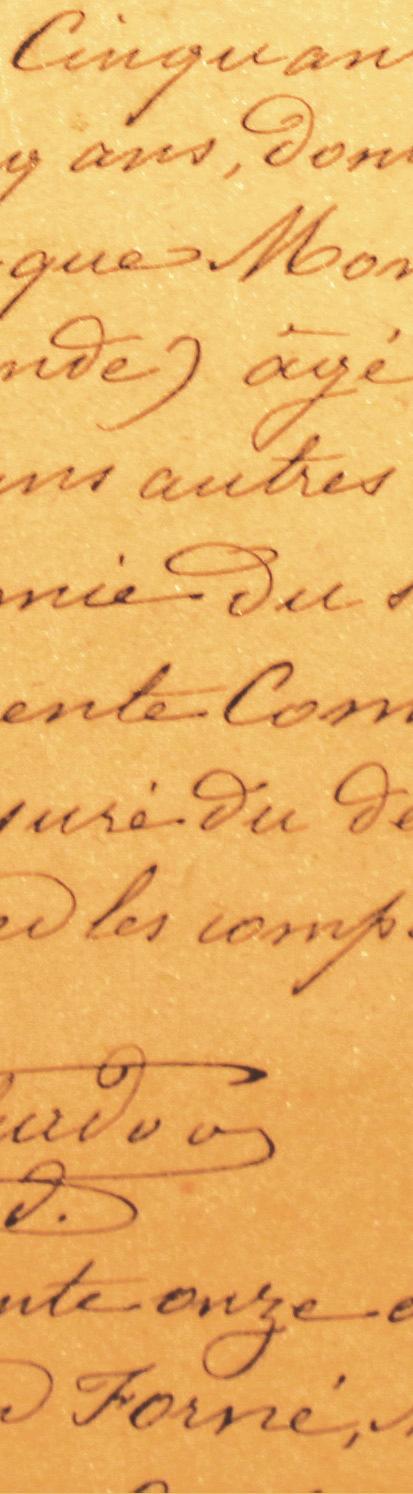 Cinquan
y ans, dom
que Mon
nde) âgé
ans autres
mie du s
ente Com
suré du dé
les comp
d.
nte onze
Forné,